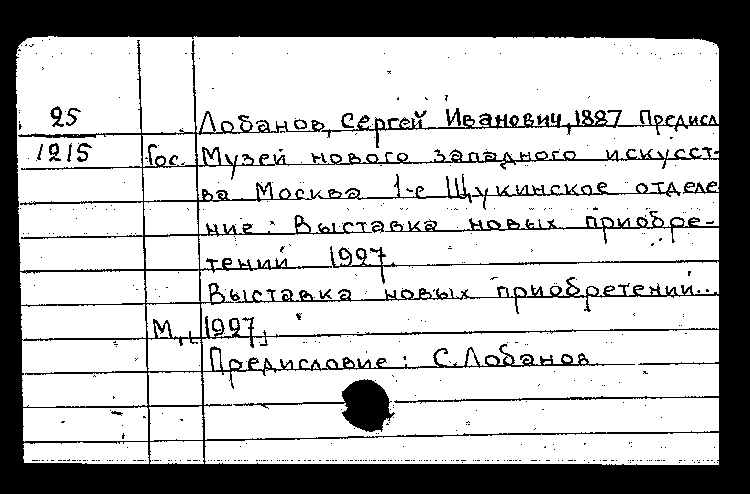 25
Лобанов, Сергей Иванович, 1887 Предисл
1215 Гос. Музей нового западного искусст-
ва Москва 1-е Щукинское отделе
ние: Выставка новых приобре-
тений 1927.
Выставка новых приобретений...
М., [1927]
Предисловие: С. Лобанов